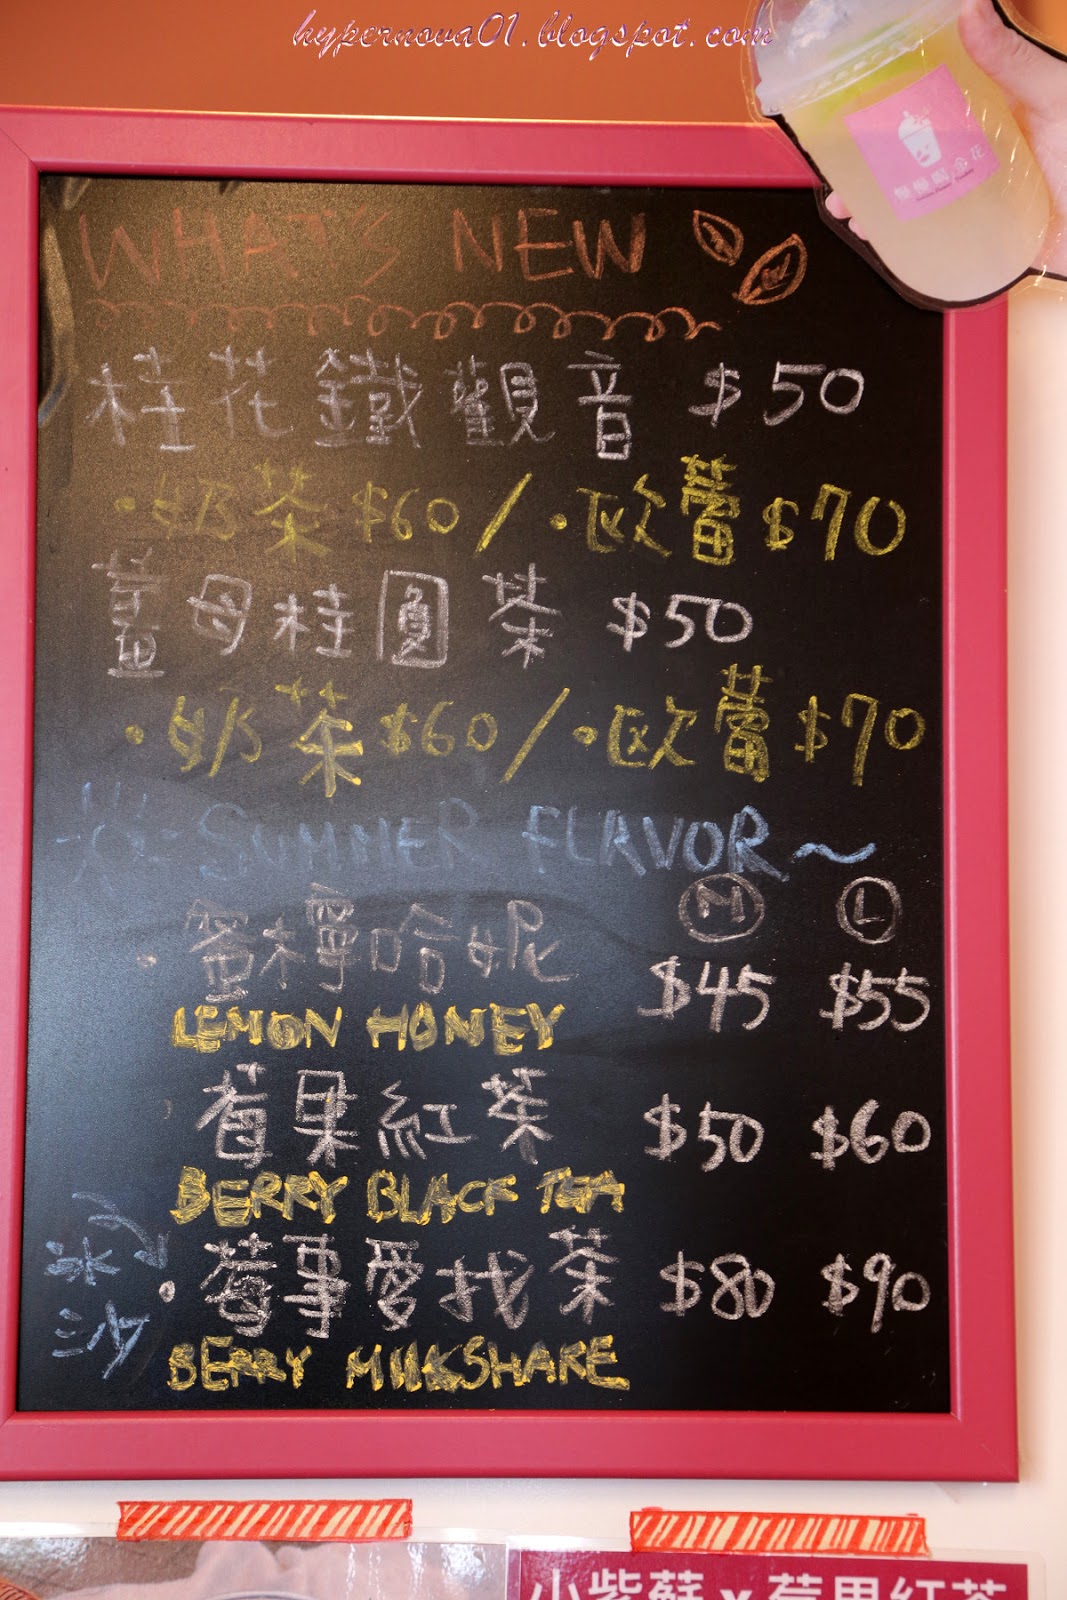 hypernova01.blogspot.com
WHAT'S NEW
桂花鐵觀音 $50
·奶茶$60/·歐蕾$70
薑母桂圓茶 $50
·奶茶$60/·歐蕾$70
SUMMER FLAVOR~
M L
·蜜檸哈妮 $45 $55
LEMON HONEY
莓果紅茶 $50 $60
BERRY BLACK TEA
冰沙
·莓事愛找茶 $80 $90
BERRY MILKSHAKE
小紫蘇x莓果紅茶